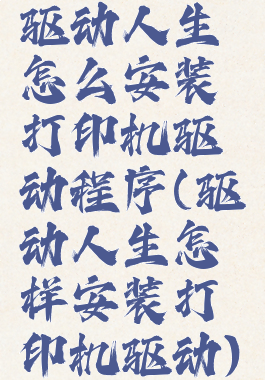 驱动人生
怎么安装
打印机驱
动程序(驱
动人生怎
样安装打
印机驱动)